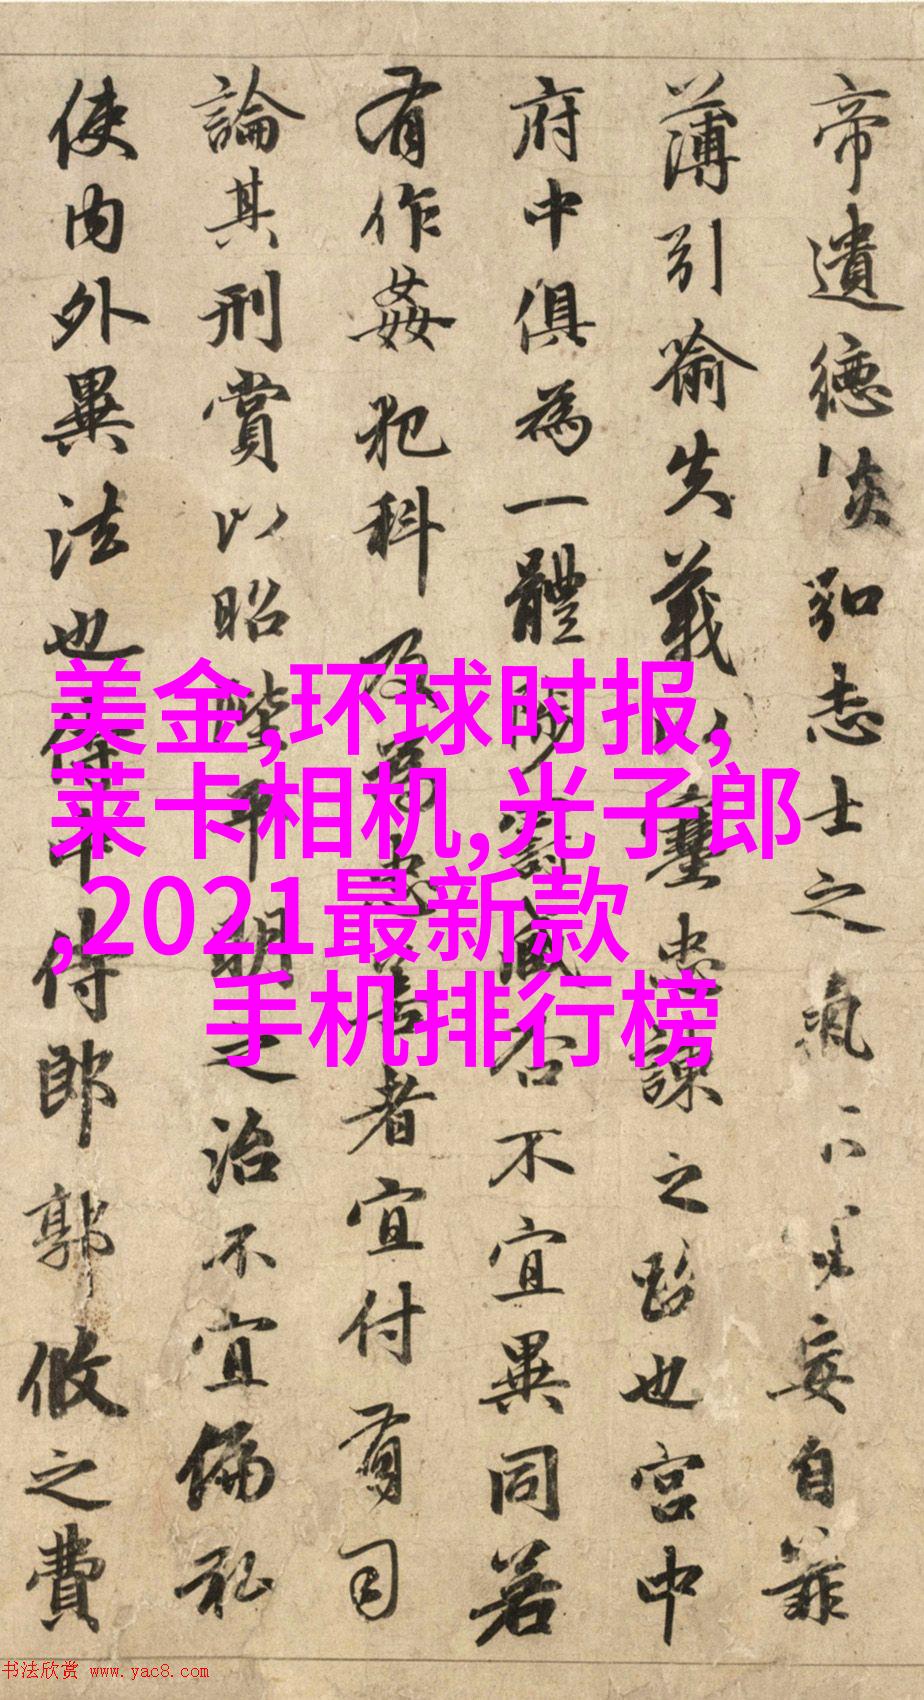 帝遺德恢弘志士之氣不妄自菲
薄引喻失義以塞忠諫之路也宮中
府中俱為一體陟罰臧否不宜異同若
有作姦犯科及為忠善者宜付有司
論其刑賞以昭陛平明之治不宜偏私
使內外異法也侍中侍郎郭攸之費
美金,环球时报,
莱卡相机,光子郎
,2021最新款
手机排行榜
书法欣赏 www.yac8.com